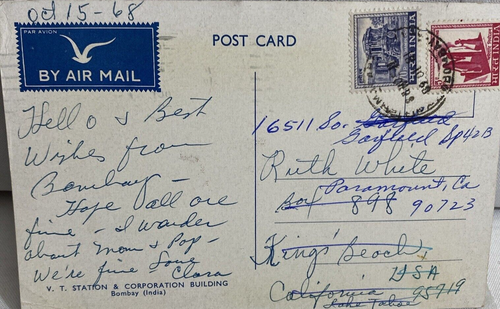 Oct 15-68
PAR AVION
BY AIR MAIL
POST CARD
भारत INDIA
भारत INDIA
Hello & Best
Wishes from
Bombay -
Hope all are
fine - I wonder
about Mom & Pop -
We're fine Love
Clara
V. T. STATION & CORPORATION BUILDING
Bombay (India)
16511 So. Garfield
Garfield Sp 42B
Ruth White
Paramount, Ca
Box 898 90723
King's Beach
USA
California 95719
Lake Tahoe